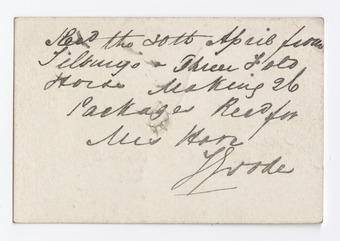 Recd the 30th April from
Tilburys a Three Fold
Horse Making 26
Packages Recd for
Mrs
Goode